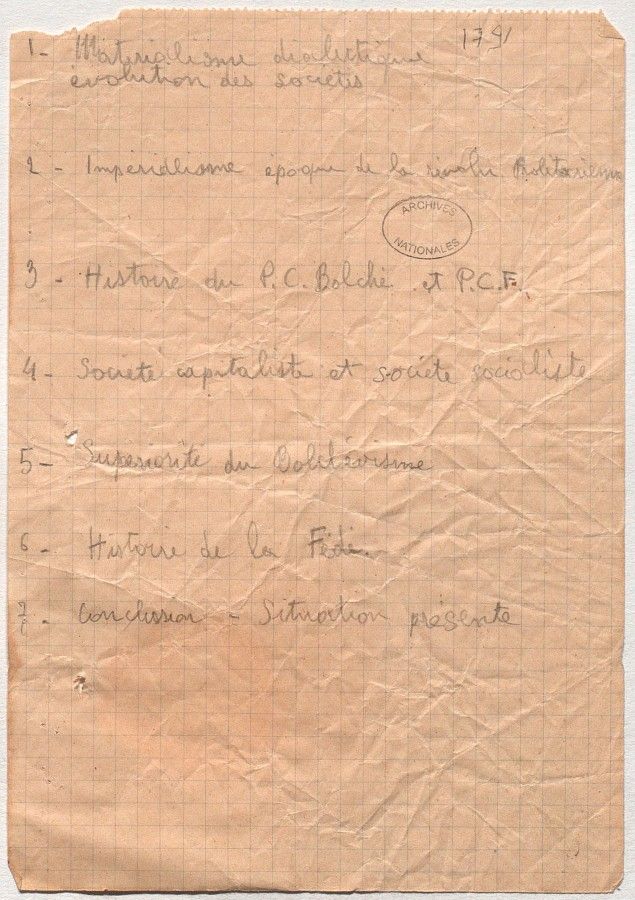 1791
1 - Matérialisme dialectique
évolution des sociétés
2 - Impérialisme époque de la révolu. Prolétarienne
ARCHIVES
NATIONALES
3 - Histoire du P.C. Bolché et P.C.F.
4 - Société capitaliste et société socialiste
5 - Supériorité du Bolchévisme
6 - Histoire de la Fédé.
7 - Conclusion - Situation présente